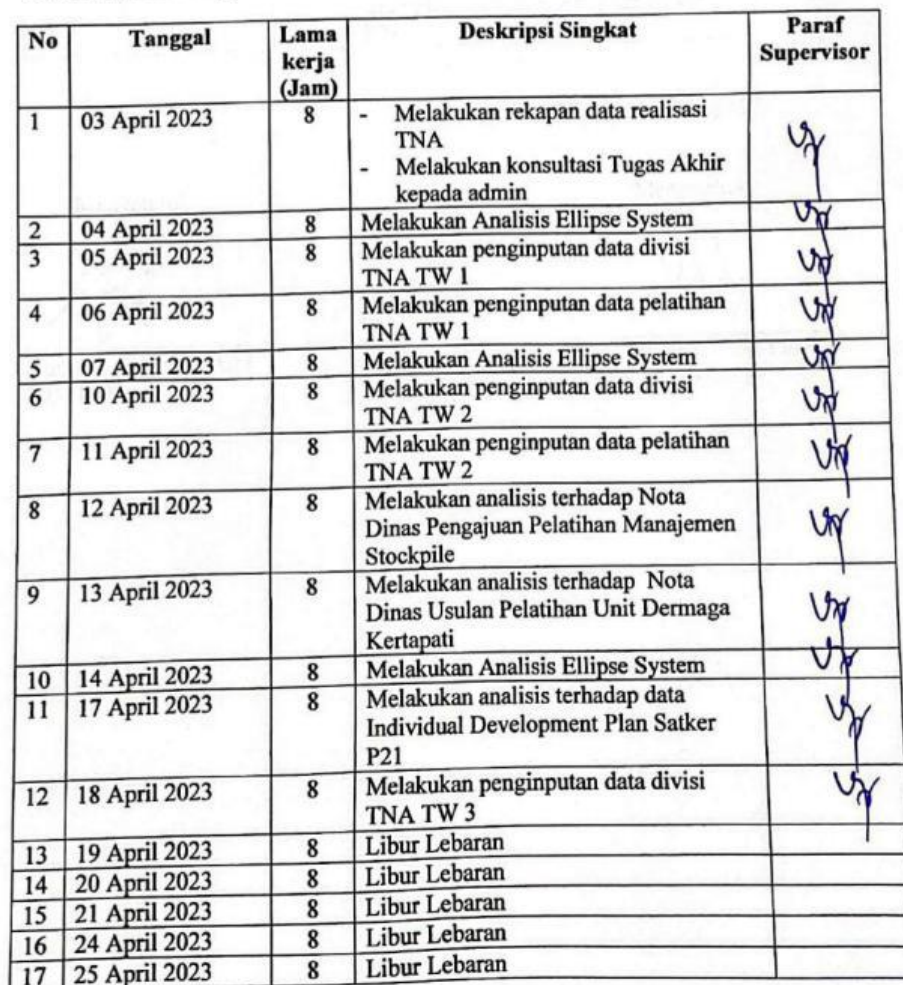 No Tanggal Lama kerja (Jam) Deskripsi Singkat Paraf Supervisor
1 03 April 2023 8 - Melakukan rekapan data realisasi
TNA
- Melakukan konsultasi Tugas Akhir
kepada admin
2 04 April 2023 8 Melakukan Analisis Ellipse System
3 05 April 2023 8 Melakukan penginputan data divisi
TNA TW 1
4 06 April 2023 8 Melakukan penginputan data pelatihan
TNA TW 1
5 07 April 2023 8 Melakukan Analisis Ellipse System
6 10 April 2023 8 Melakukan penginputan data divisi
TNA TW 2
7 11 April 2023 8 Melakukan penginputan data pelatihan
TNA TW 2
8 12 April 2023 8 Melakukan analisis terhadap Nota
Dinas Pengajuan Pelatihan Manajemen
Stockpile
9 13 April 2023 8 Melakukan analisis terhadap Nota
Dinas Usulan Pelatihan Unit Dermaga
Kertapati
10 14 April 2023 8 Melakukan Analisis Ellipse System
11 17 April 2023 8 Melakukan analisis terhadap data
Individual Development Plan Satker
P21
12 18 April 2023 8 Melakukan penginputan data divisi
TNA TW 3
13 19 April 2023 8 Libur Lebaran
14 20 April 2023 8 Libur Lebaran
15 21 April 2023 8 Libur Lebaran
16 24 April 2023 8 Libur Lebaran
17 25 April 2023 8 Libur Lebaran